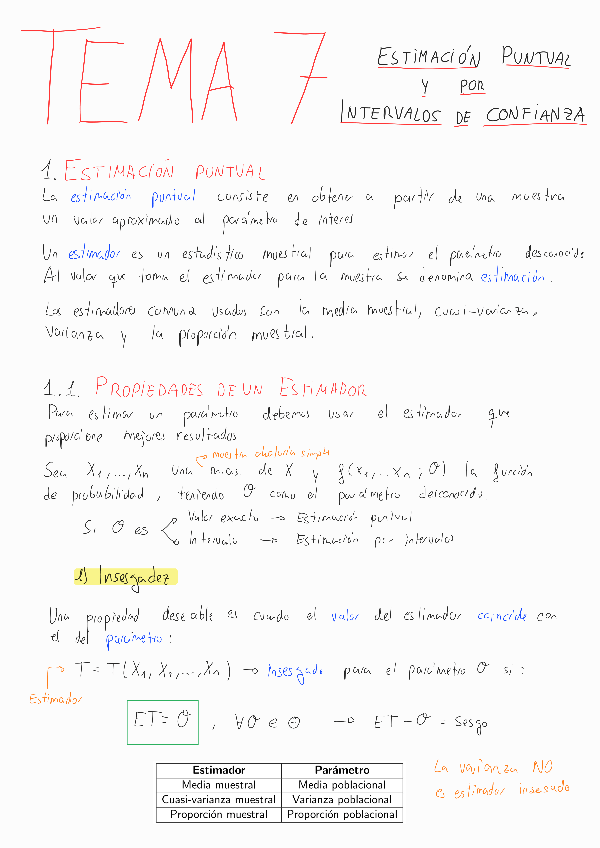 TEMA 7
ESTIMACIÓN PUNTUAL
Y POR
INTERVALOS DE CONFIANZA
1. ESTIMACIÓN PUNTUAL
La estimación puntual consiste en obtener a partir de una muestra
un valor aproximado al parámetro de interés
Un estimador es un estadístico muestral para estimar el parámetro desconocido
Al valor que toma el estimador para la muestra se denomina estimación.
Los estimadores comunmente usados son la media muestral, cuasi-varianza,
varianza y la proporción muestral.
1.1. PROPIEDADES DE UN ESTIMADOR
Para estimar un parámetro debemos usar el estimador que
proporcione mejores resultados
muestra aleatoria simple
Sea X₁,...,Xn una m.a.s de X y f(x₁,...xn; θ) la función
de probabilidad, teniendo θ como el parámetro desconocido
Si θ es
Valor exacto → Estimación puntual
Intervalo → Estimación por intervalos
1) Insesgadez
Una propiedad deseable es cuando el valor del estimador coincide con
el del parámetro:
→ T = T(X₁, X₂,..., Xn) → Insesgado para el parámetro θ si:
Estimador
ET = θ , ∀θ ∈ Θ → ET - θ = Sesgo
Estimador Parámetro
Media muestral Media poblacional
Cuasi-varianza muestral Varianza poblacional
Proporción muestral Proporción poblacional
La varianza NO
es estimador insesgado